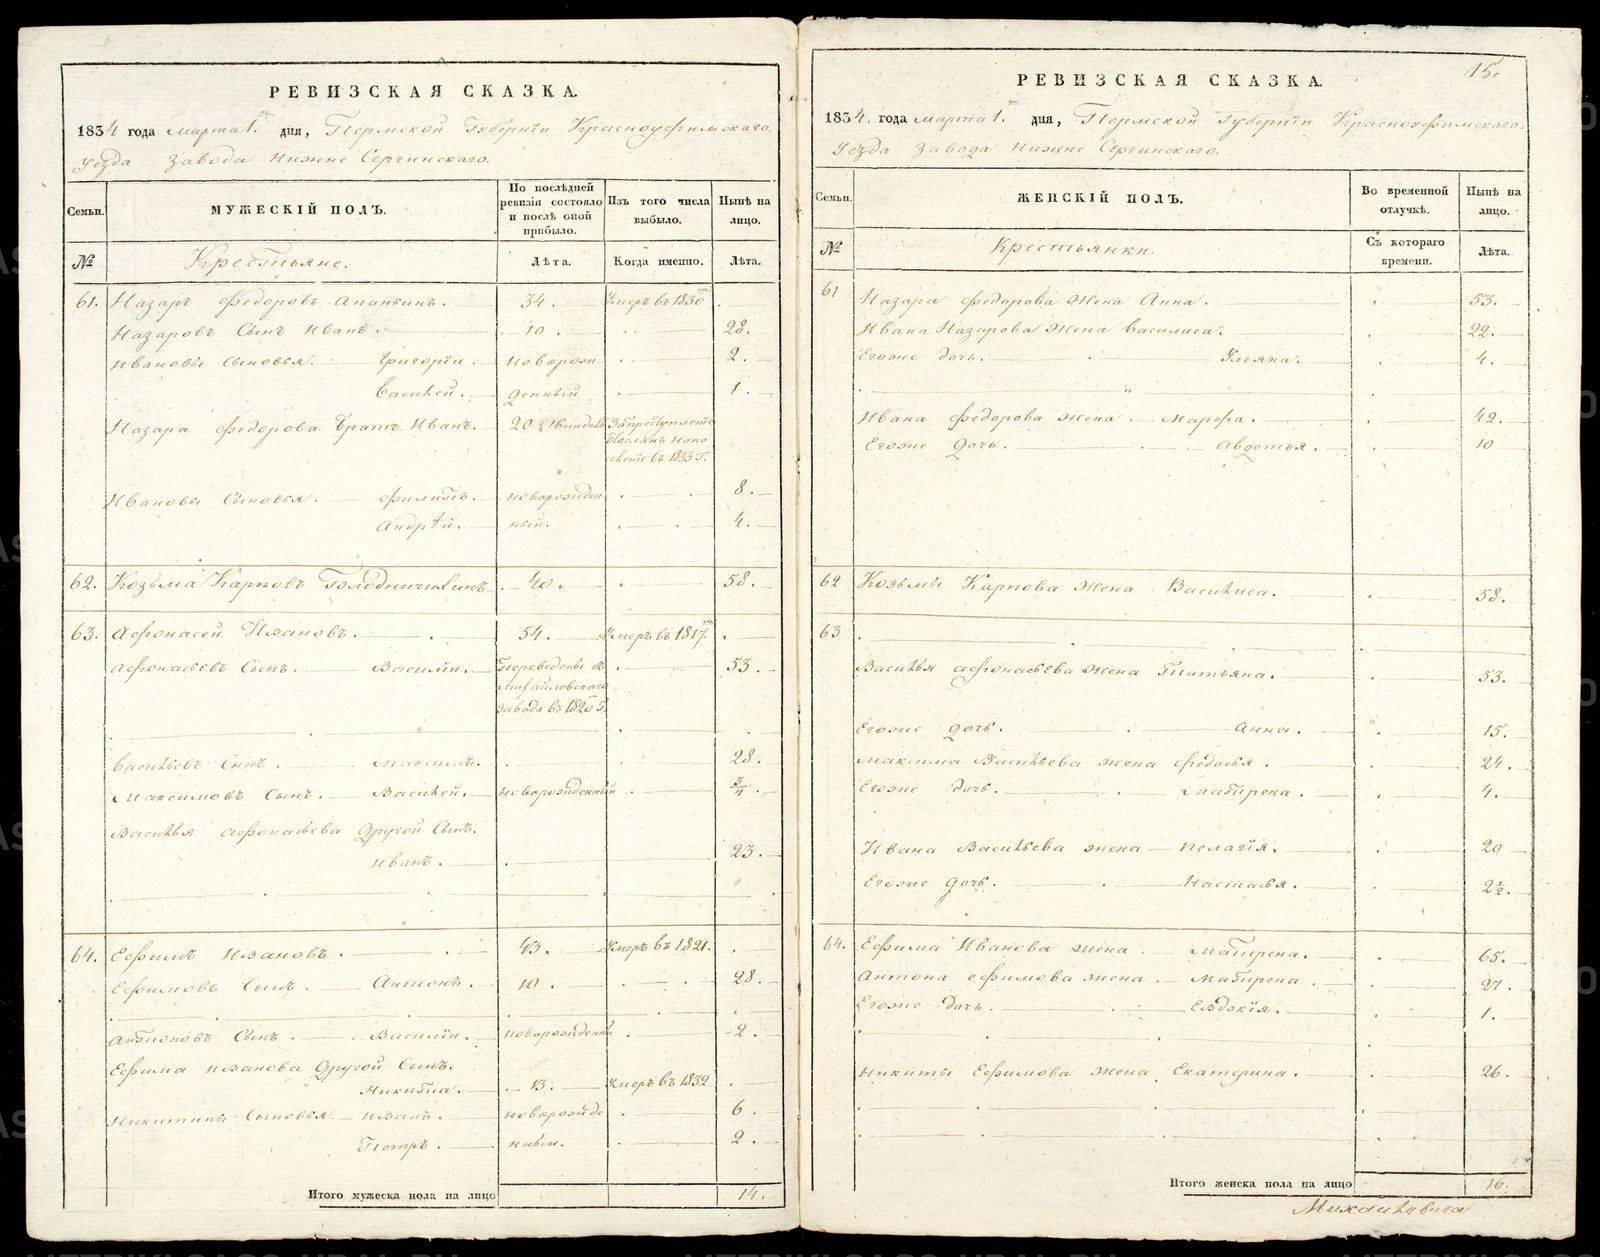 РЕВИЗСКАЯ СКАЗКА.
1834 года марта 1. дня, Пермской Губернiи Красноуфимскаго.
Уезда Завода Нижне Сергинскаго.
Семьи. МУЖЕСКIЙ ПОЛЪ. По послѣдней ревизiи состояло и послѣ оной прибыло. Изъ того числа выбыло. Нынѣ на лицо.
№ Крестьяне. Лѣта. Когда именно. Лѣта.
61. Назаръ Федоровъ Ананьинъ. 34. Умеръ въ 1830
Назаровъ Сынъ Иванъ. 10. 28.
Ивановы Сыновья. Григорiи. новорож 2.
Василей. денный 1.
Назара Федорова Братъ Иванъ. 20
въ 1833 Г.
Ивановы Сыновья. Филипъ. новорожден 8.
Андрѣй. ный. 4.
62. Козьма Карповъ 40. 58.
63. Афонасей Ивановъ. 54. Умеръ въ 1817.
Афонасьевъ Сынъ. Василiи. Переведенъ из 53.
Михайловскаго
завода въ 1820 Г.
Васильевъ Сынъ. Максимъ. 28.
Максимовъ Сынъ. Василей. новорожденный 3/4.
Василья Афонасьева Другой Сынъ.
Иванъ. 23.
64. Ефимъ Ивановъ. 43. Умеръ въ 1821.
Ефимовъ Сынъ. Антонъ. 10. 28.
Антоновъ Сынъ. Василiи. новорожденный 2.
Ефима Иванова Другой Сынъ.
Никита. 13. Умеръ въ 1832
Никитины Сыновья. Иванъ. новорожде 6.
Петръ. нные. 2.
Итого мужеска пола на лицо 14.
15.
РЕВИЗСКАЯ СКАЗКА.
1834. года марта 1. дня, Пермской Губернiи Красноуфимскаго.
Уезда Завода Нижне Сергинскаго.
Семьи. ЖЕНСКIЙ ПОЛЪ. Во временной отлучкѣ. Нынѣ на лицо.
№ Крестьянки. Съ котораго времени. Лѣта.
61 Назара Федорова жена Анна. 53.
Ивана Назарова жена Василиса. 22.
Егоже дочь. Ульяна. 4.
Ивана Федорова жена. Марфа. 42.
Егоже Дочь. Авдотья. 10
62 Козьмы Карпова жена Василиса. 58.
63
Василья Афонасьева жена Татьяна. 53.
Егоже дочь. Анна. 15.
Максима Васильева жена Федосья. 24.
Егоже дочь. Матрена. 4.
Ивана Васильева жена Пелагiя. 20
Егоже дочь. Настасья. 2 1/2.
64. Ефима Иванова жена. Матрена. 65.
Антона Ефимова жена. Матрена 27.
Егоже дочь. Евдокiя. 1.
Никиты Ефимова жена Екатерина. 26.
Итого женска пола на лицо 16.